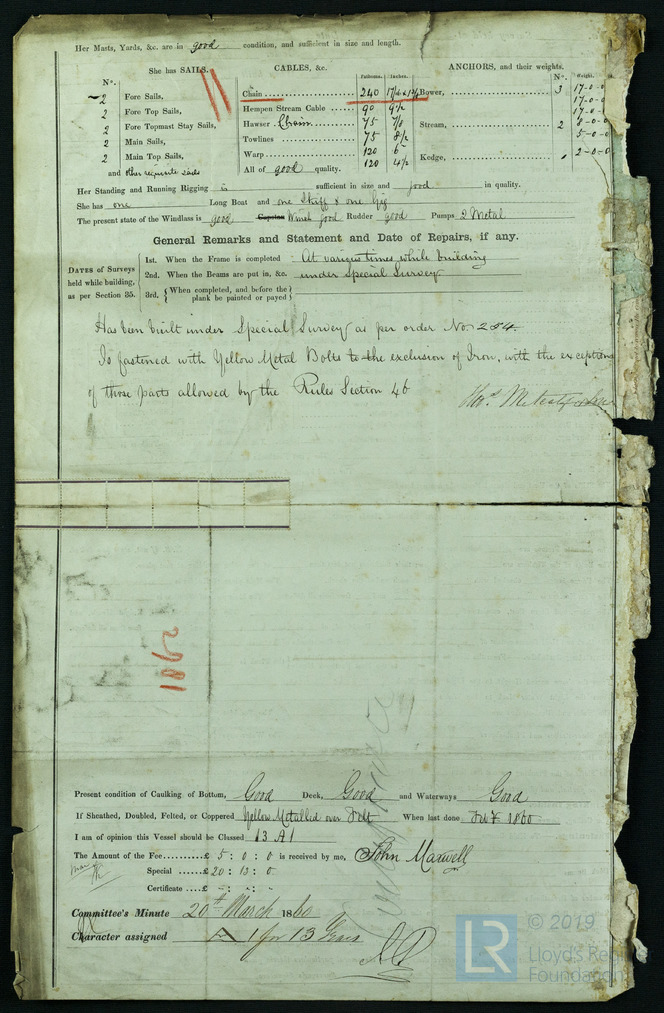 Her Masts, Yards, &c. are in good condition, and sufficient in size and length.
She has SAILS.
CABLES, &c.
ANCHORS, and their weights.
Nº.
Fathoms.
Inches.
Nº.
Weight.
2 Fore Sails,
Chain 240
Bower, 3 17-0-0
2 Fore Top Sails,
Hempen Stream Cable 90 9½
17-0-0
17-0-0
2 Fore Topmast Stay Sails,
Hawser Chain 75 7/8
Stream, 2 8-0-0
2 Main Sails,
Towlines 75 8½
5-0-0
2 Main Top Sails,
Warp 120 6
Kedge, 1 2-0-0
and other requisite sails
All of good quality. 120 4½
Her Standing and Running Rigging is sufficient in size and good in quality.
She has one Long Boat and one Skiff & one Gig
The present state of the Windlass is good Capstan Winch good Rudder good Pumps 2 Metal
General Remarks and Statement and Date of Repairs, if any.
DATES of Surveys held while building, as per Section 35.
1st. When the Frame is completed At various times while building
2nd. When the Beams are put in, &c. under Special Survey
3rd. When completed, and before the plank be painted or payed
Has been built under Special Survey as per order No 254
Is fastened with Yellow Metal Bolts to the exclusion of Iron, with the exceptions
of those parts allowed by the Rules Section 46
1862
Present condition of Caulking of Bottom, Good Deck, Good and Waterways Good
If Sheathed, Doubled, Felted, or Coppered Yellow Metalled over Felt When last done 1860
I am of opinion this Vessel should be Classed 13 A1
The Amount of the Fee £ 5 : 0 : 0 is received by me, John Maxwell
Special £ 20 : 13 : 0
Certificate £ - : - : -
Committee's Minute 20th March 1860
Character assigned A 1 for 13 Years
LR
© 2019
Lloyd's Regi
Foundation